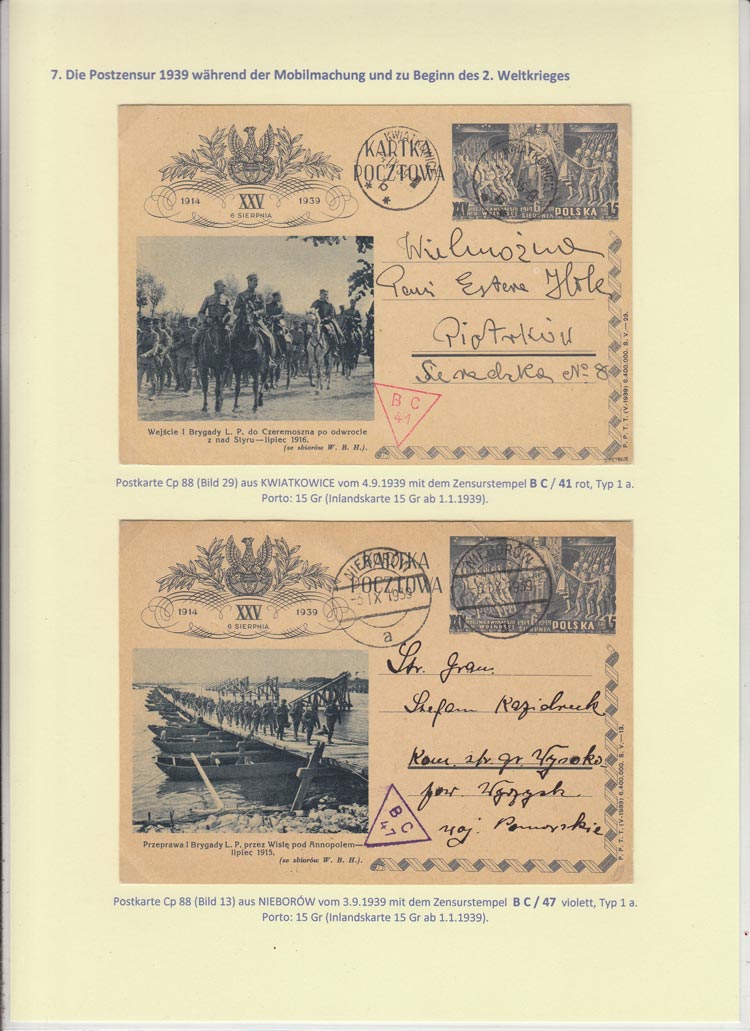 7. Die Postzensur 1939 während der Mobilmachung und zu Beginn des 2. Weltkrieges
KARTKA
POCZTOWA
KWIATKOWICE
1914 XXV 1939
6 SIERPNIA
POLSKA 15
Wielmożna
Pani Estera
Piotrków
Sieradzka No 8
B C
41
Wejście I Brygady L. P. do Czeremoszna po odwrocie
z nad Styru—lipiec 1916.
(ze zbiorów W. B. H.).
P. P. T. T. (V-1939) 6.400.000. S. V.—29.
Postkarte Cp 88 (Bild 29) aus KWIATKOWICE vom 4.9.1939 mit dem Zensurstempel B C / 41 rot, Typ 1 a.
Porto: 15 Gr (Inlandskarte 15 Gr ab 1.1.1939).
KARTKA
POCZTOWA
NIEBORÓW
-3 IX 1939
a
NIEBORÓW
1914 XXV 1939
6 SIERPNIA
POLSKA 15
Str. Gran.
Stefan
Kom. str. gr. Wysoka
pow Wyrzysk
woj. Pomorskie
B C
47
Przeprawa I Brygady L. P. przez Wisłę pod Annopolem—
lipiec 1915.
(ze zbiorów W. B. H.).
P. P. T. T. (V-1939) 6.400.000. S. V.—13.
Postkarte Cp 88 (Bild 13) aus NIEBORÓW vom 3.9.1939 mit dem Zensurstempel B C / 47 violett, Typ 1 a.
Porto: 15 Gr (Inlandskarte 15 Gr ab 1.1.1939).